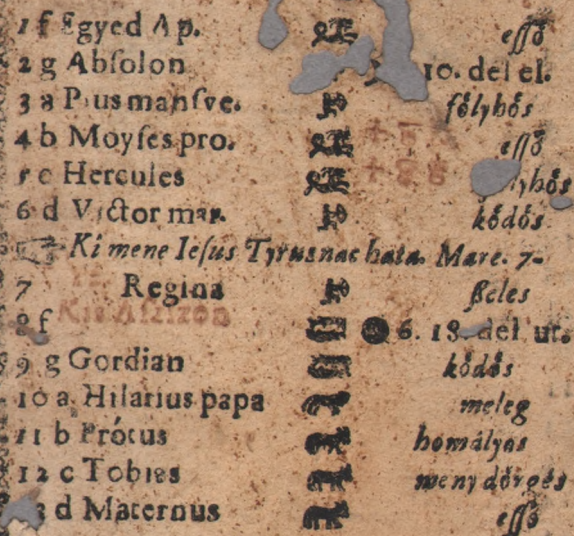 1 f Egyed Ap. eſſő
2 g Abſolon 10. del el.
3 a Pius manſve. fölyhős
4 b Moyſes pro. eſſő
5 c Hercules
6 d Victor mar. ködös
☞ Ki mene Ieſus Tyrusnac hata. Marc. 7-
7 Regina ßeles
8 f 6. 18. del ut.
9 g Gordian ködös
10 a Hilarius papa meleg
11 b Prótus homályas
12 c Tobies meny dörgés
d Maternus eſſő